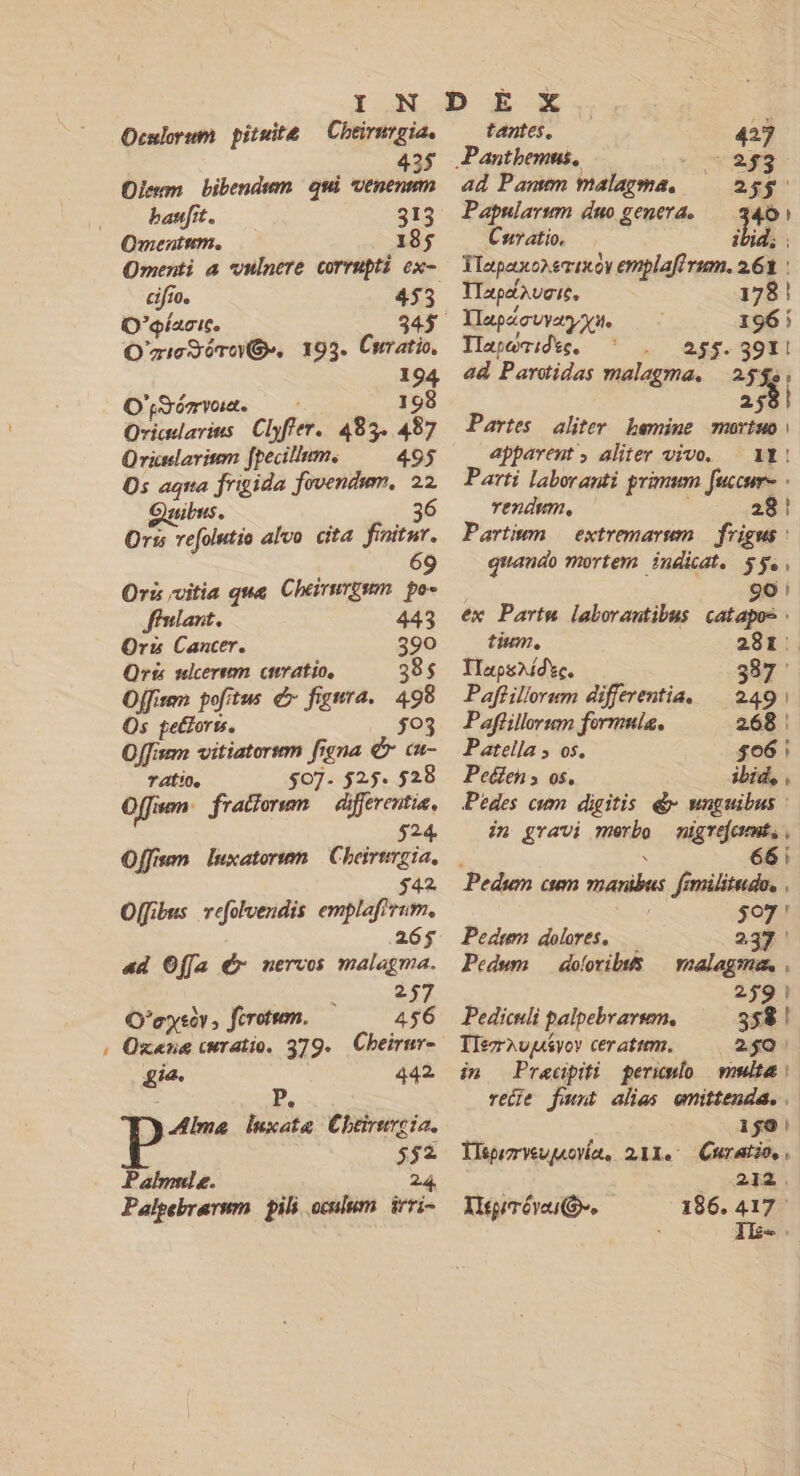 INDEX
Oculorum pituitæ Cheirurgia.
435
Oleum bibendum qui venenum
hauſit. 313
Omentum. 185
Omenti a vulnere corrupti ex-
ciſio. 453
Ὀφίασις. 345
Ὀπισθότον⊕. 193. Curatio.
194
Ὀρθόπνοια. 198
Oricularius Clyſter. 483. 487
Oricularium ſpecillum. 495
Os aqua frigida fovendum. 22
Quibus. 36
Oris reſolutio alvo cita finitur.
69
Oris vitia quæ Cheirurgum po-
ſtulant. 443
Oris Cancer. 390
Oris ulcerum curatio. 385
Oſſium poſitus & figura. 498
Os pectoris. 503
Oſſium vitiatorum ſigna & cu-
ratio. 507. 525. 528
Oſſium fractorum differentiæ.
524
Oſſium luxatorum Cheirurgia.
542
Oſſibus reſolvendis emplaſtrum.
265
ad Oſſa & nervos malagma.
257
Ὀσχεὸν, ſcrotum. 456
Ozænæ curatio. 379. Cheirur-
gia. 442
P.
PAlmæ luxatæ Cheirurgia.
552
Palmulæ. 24
Palpebrarum pili oculum irri-
tantes. 427
Panthemus. 253
ad Panum malagma. 255
Papularum duo genera. 340
Curatio. ibid.
Παρακολλητικὸν emplaſtrum. 261
Παράλυσις. 178
Παράσυνάγχη. 196
Παρωτίδες. 255. 391
ad Parotidas malagma.
258
Partes aliter homine mortuo
apparent, aliter vivo. 11
Parti laboranti primum ſuccur-
rendum. 28
Partium extremarum frigus
quando mortem indicat. 55.
90
ex Partu laborantibus catapo-
tium. 281
Παρουλίδες. 387
Paſtillorum differentia. 249
Paſtillorum formulæ. 268
Patella, os. 506
Pecten, os. ibid.
Pedes cum digitis & unguibus
in gravi morbo nigreſcunt.
66
Pedum cum manibus ſimilitudo.
507
Pedum dolores. 237
Pedum doloribus malagma.
259
Pediculi palpebrarum. 358
Πεπλυμένον ceratum. 250
in Præcipiti periculo multa
recte fiunt alias omittenda.
150
Περιπνευμονία. 211. Curatio.
212
Περιτόναι⊕. 186. 417
Πε-